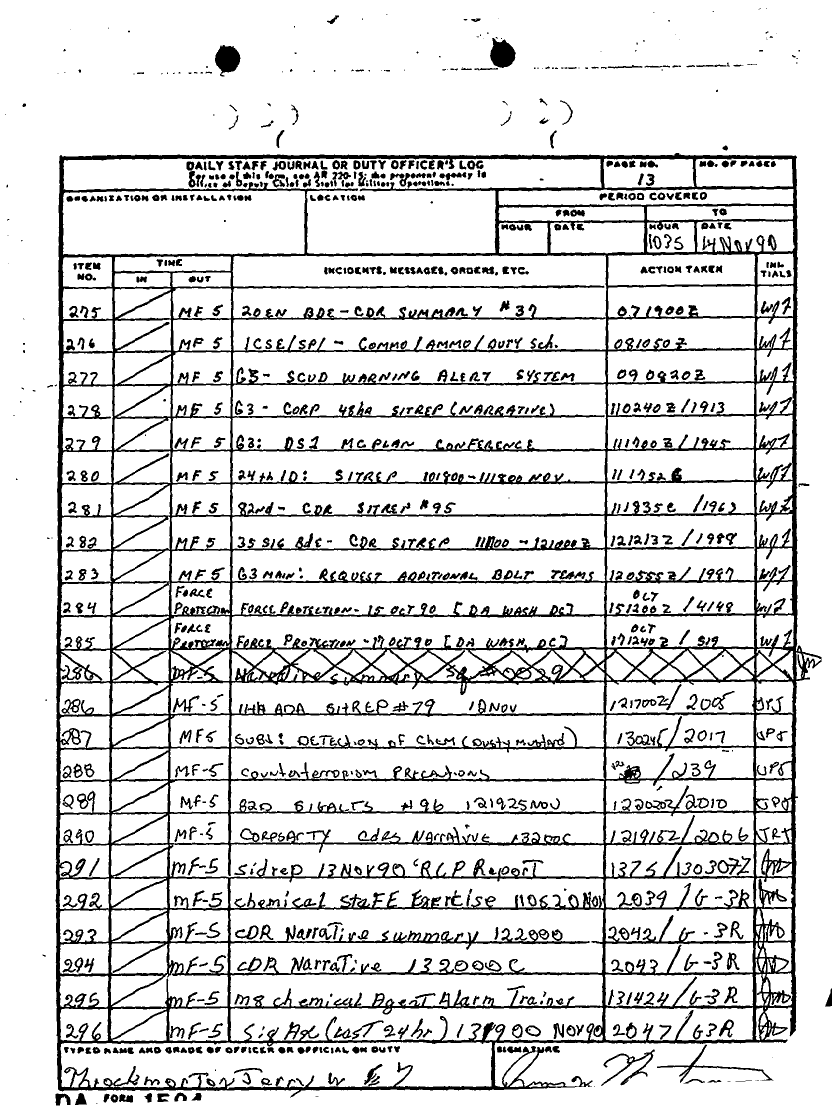 DAILY STAFF JOURNAL OR DUTY OFFICER'S LOG
For use of this form, see AR 220-15; the proponent agency is
Office of Deputy Chief of Staff for Military Operations.
PAGE NO.
13
NO. OF PAGES
ORGANIZATION OR INSTALLATION
LOCATION
PERIOD COVERED
FROM
TO
HOUR
DATE
HOUR
DATE
1035
14 Nov 90
ITEM NO.
TIME
IN
OUT
INCIDENTS, MESSAGES, ORDERS, ETC.
ACTION TAKEN
INI-TIALS
275 MF 5 20EN BDE - CDR SUMMARY #37 071900Z
276 MF 5 1CSE/SPI - COMMO/AMMO/DUTY Sch. 081050Z
277 MF 5 G3 - SCUD WARNING ALERT SYSTEM 090820Z
278 MF 5 G3 - CORP 48hr SITREP (NARRATIVE) 110240Z/1913
279 MF 5 G3: DSI MCPLAN CONFERENCE 111700Z/1945
280 MF 5 24th ID: SITREP 101800-111800 NOV.
281 MF 5 82nd - CDR SITREP #95 111835C
282 MF 5 35 SIG Bde - CDR SITREP - 121000Z 121213Z/1988
283 MF 5 G3 MAIN: REQUEST ADDITIONAL BDLT TEAMS 120555Z/1987
284 FORCE PROTECTION FORCE PROTECTION - 15 OCT 90 [DA WASH DC] OCT 151200Z/4148
285 FORCE PROTECTION FORCE PROTECTION - 17 OCT 90 [DA WASH, DC] OCT 171240Z/519
286 MF-5 Narrative summary #0029
286 MF-5 ADA SITREP #79 12 NOV 121700Z/2005
287 MF5 SUBJ: DETECTION of CHEM (Dusty Mustard) /2017
288 MF-5 Counterterrorism /239
289 MF-5 82D #96 121925NOV /2010
290 MF-5 CORPSARTY CDRS NARRATIVE 132000C 121915Z/2006
291 MF-5 sidrep 13 Nov 90 Report 1375/130307Z
292 MF-5 chemical staff Exercise 110620 Nov 2039/G-3R
293 MF-5 CDR Narrative summary 122000 2042/G-3R
294 MF-5 CDR Narrative 132000C 2043/G-3R
295 MF-5 M8 chemical Agent Alarm Trainer 131424/G-3R
296 MF-5 (Last 24hr) 131900 NOV90 2047/G3R
TYPED NAME AND GRADE OF OFFICER OR OFFICIAL ON DUTY
SIGNATURE
Throckmorton Jerry W E7
DA FORM 1594